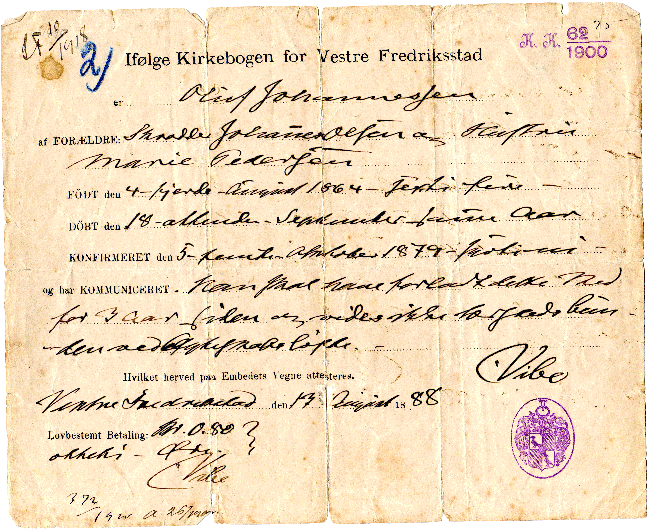 2)
K. K. 62/1900
Ifølge Kirkebogen for Vestre Fredriksstad
er Oluf Johannessen
af FORÆLDRE: Skrædder Johannes Olsen og Hustru
Marie Pedersen
FÖDT den 4 - fjerde - August 1864 - sexti fire -
DÖBT den 18 - attende - September samme Aar
KONFIRMERET den 5 - femte - Oktober 1879 - sytti ni -
og har KOMMUNICERET. Han skal have forladt dette Sted
for 3 Aar siden og vides ikke at
ved Ægteskabsløfte. -
Hvilket herved paa Embedets Vegne attesteres.
Vibe
Vestre Fredriksstad den 13 August 1888
Lovbestemt Betaling: Kr. 0.80
otteti - Øre.
Vibe